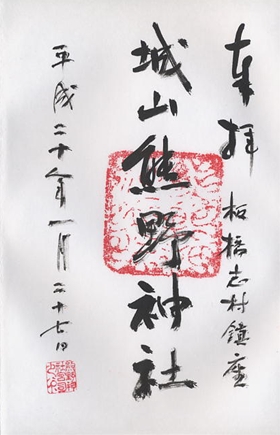 奉拝
板橋志村鎮座
城山熊野神社
平成二十八年一月二十七日